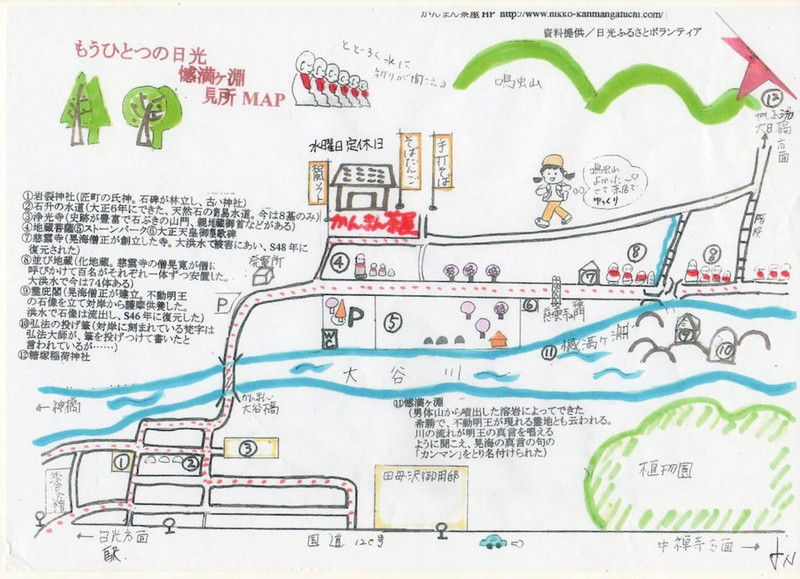 かんまん茶屋HP http://www.nikko-kanmangafuchi.com/
資料提供／日光ふるさとボランティア
もうひとつの日光
憾満ヶ淵
見所 MAP
とどろく水に
祈りが聞こえる
鳴虫山
⑫
大日橋
方面
水曜日定休日
そばだんご
手打そば
かんまん茶屋
鳴虫山
よかった〜
さて茶店で
ゆっくり
①岩裂神社(匠町の氏神。石碑が林立し、古い神社)
②石升の水道(大正6年にできた、天然石の簡易水道。今は8基のみ)
③浄光寺(史跡が豊富で石ぶきの山門、親地蔵御首などがある)
④地蔵菩薩⑤ストーンパーク⑥大正天皇御製歌碑
⑦慈雲寺(晃海僧正が創立した寺。大洪水で被害にあい、S48年に
復元された)
⑧並び地蔵(化地蔵。慈雲寺の僧晃寛が僧に
呼びかけて百名がそれぞれ一体ずつ安置した。
大洪水で今は74体ある)
⑨霊庇閣(晃海僧正が建立。不動明王
の石像を立て対岸から護摩供養した。
洪水で石像は流出し、S46年に復元した)
⑩弘法の投げ筆(対岸に刻まれている梵字は
弘法大師が、筆を投げつけて書いたと
言われているが……)
⑫糠塚稲荷神社
発電所
P
④
⑦
⑧
⑧
P
WC
⑤
⑥
慈雲寺門
⑪憾満ヶ淵
⑨
⑩
大谷川
←神橋
がんまん
大谷橋
⑪憾満ヶ淵
(男体山から噴出した溶岩によってできた
奇勝で、不動明王が現れる霊地とも云われる。
川の流れが明王の真言を唱える
ように聞こえ、晃海の真言の句の
「カンマン」をとり名付けられた)
①
②
③
田母沢御用邸
植物園
←日光方面
駅
国道120号
中禅寺方面→
N